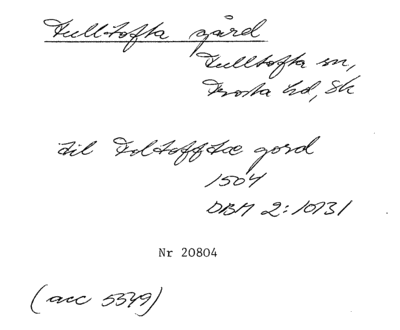 Fulltofta gård
Fulltofta sn,
Frosta hd, Sk
til Foltofftæ gord
1504
DBH 2:10731
Nr 20804
(acc 5549)